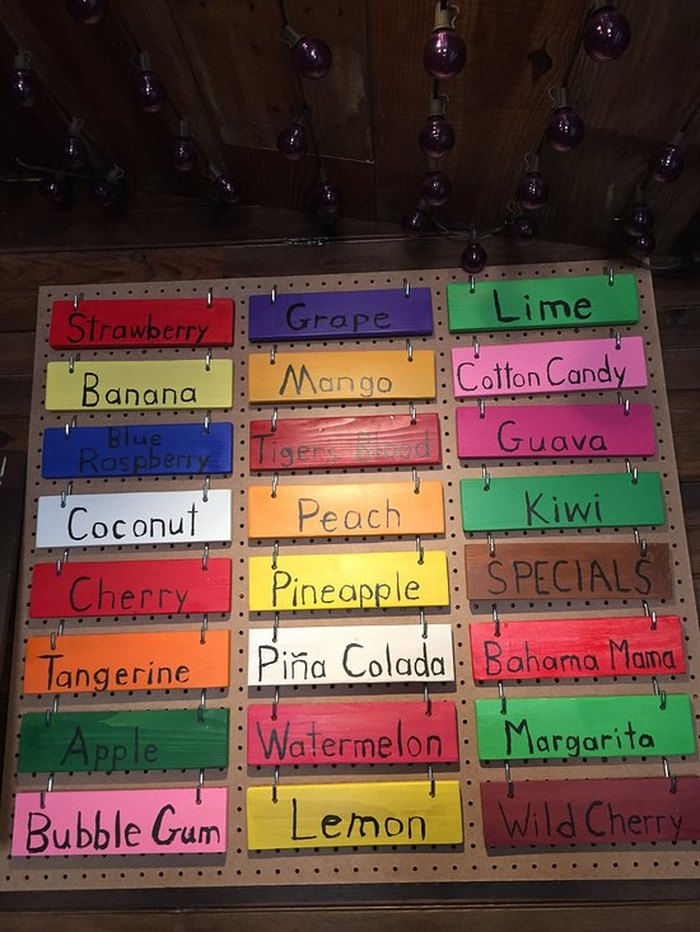 Strawberry
Banana
Blue
Raspberry
Coconut
Cherry
Tangerine
Apple
Bubble Gum
Grape
Mango
Tigers Blood
Peach
Pineapple
Piña Colada
Watermelon
Lemon
Lime
Cotton Candy
Guava
Kiwi
SPECIALS
Bahama Mama
Margarita
Wild Cherry